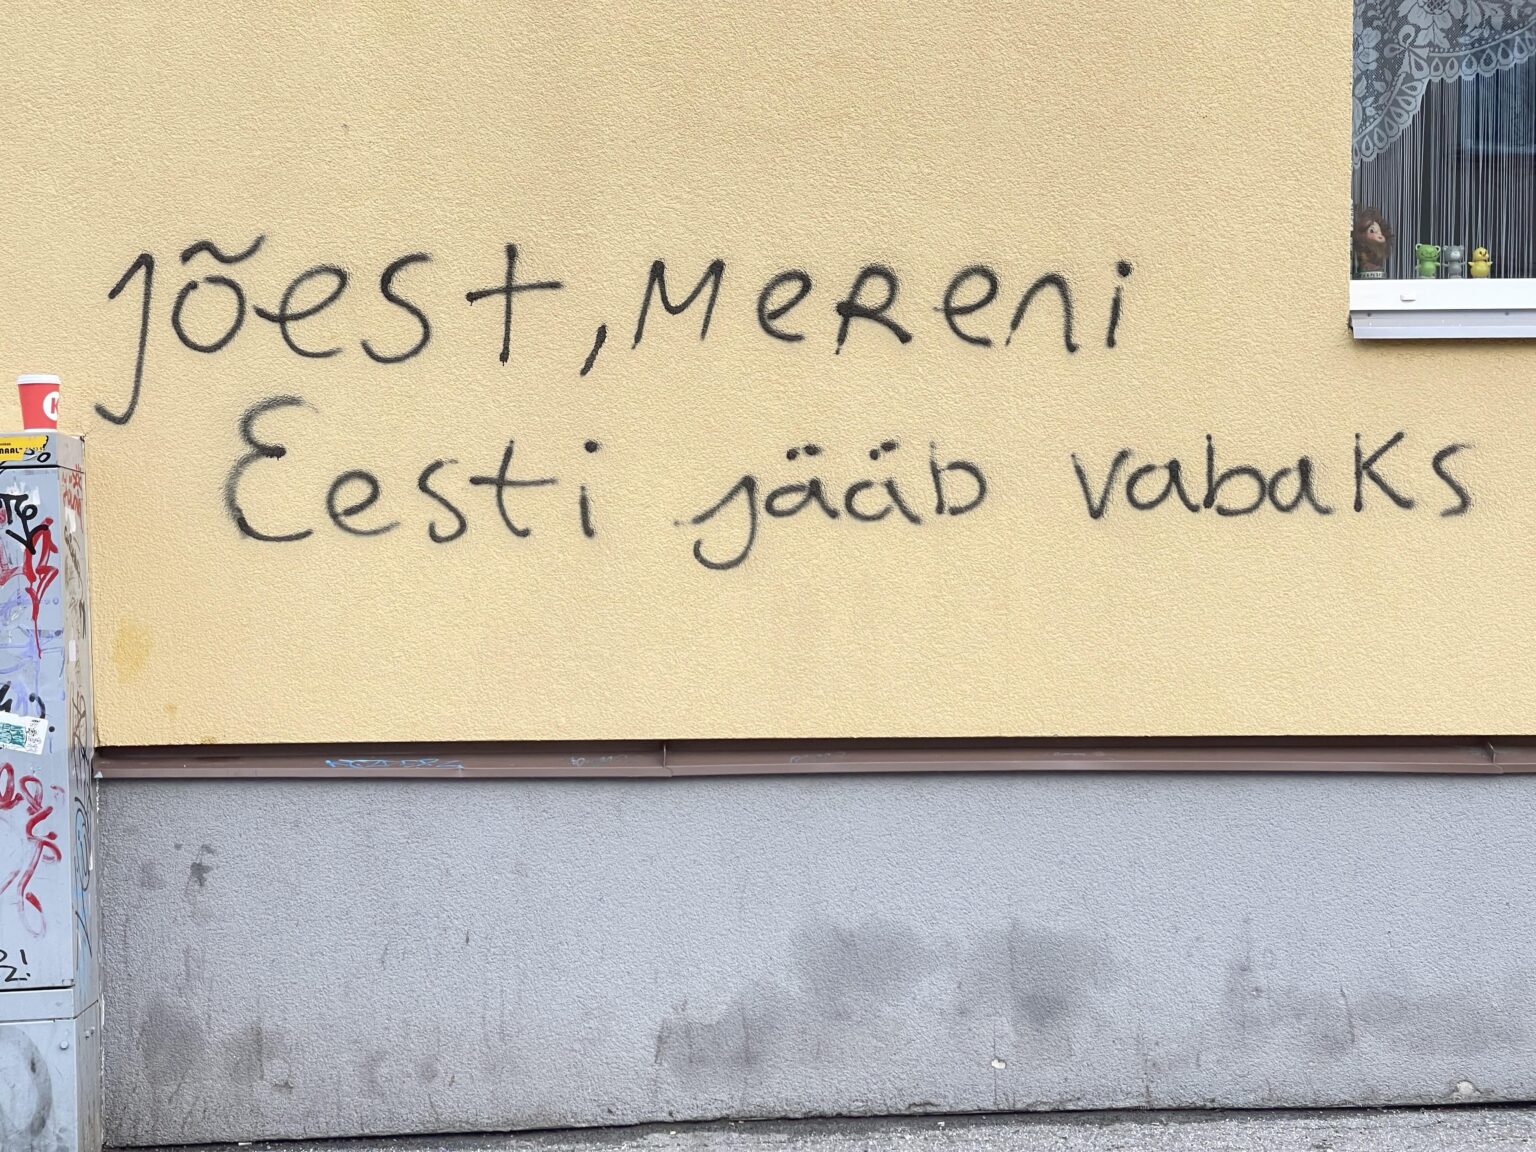 jõest, mereni
Eesti jääb vabaks